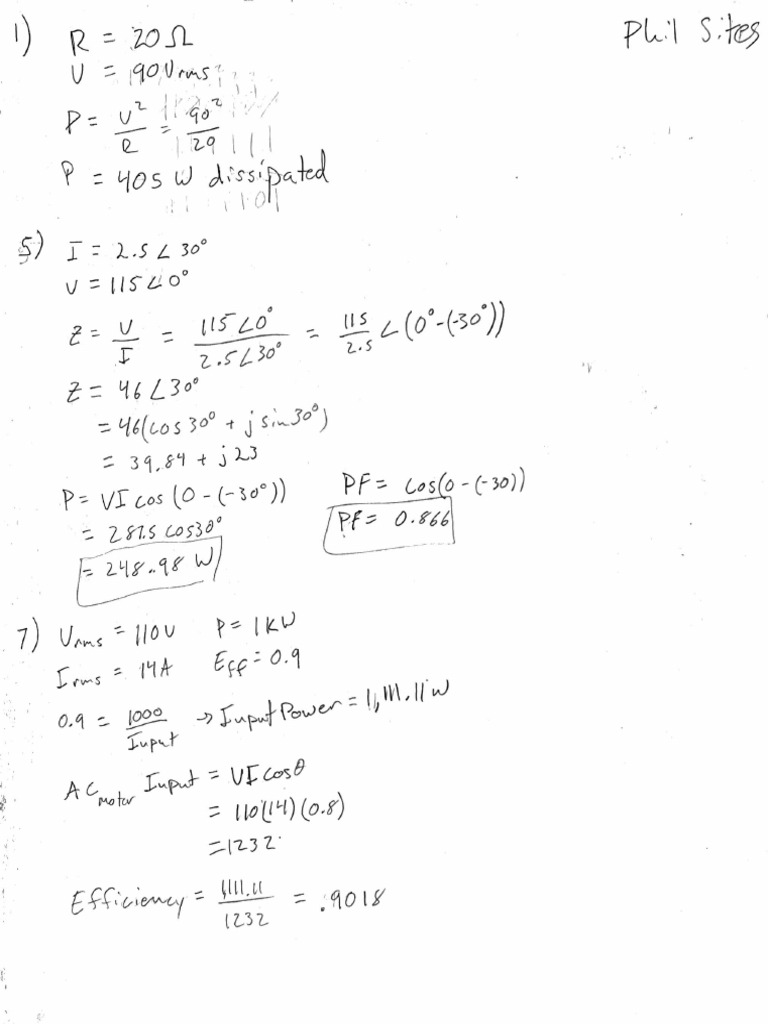 Phil Sites
1) R = 20Ω
V = 90Vrms
P = V²/R = 90²/20
P = 405 W dissipated
5) I = 2.5∠30°
V = 115∠0°
Z = V/I = 115∠0°/2.5∠30° = 115/2.5 ∠(0°-(-30°))
Z = 46∠30°
= 46(cos30° + j sin30°)
= 39.84 + j23
P = VI cos(0-(-30°)) PF = cos(0-(-30))
= 287.5 cos30° PF = 0.866
= 248.98 W
7) Vrms = 110V P = 1KW
Irms = 14A Eff = 0.9
0.9 = 1000/Input → Input Power = 1,111.11W
AC motor Input = VI cosθ
= 110(14)(0.8)
= 1232
Efficiency = 1111.11/1232 = .9018